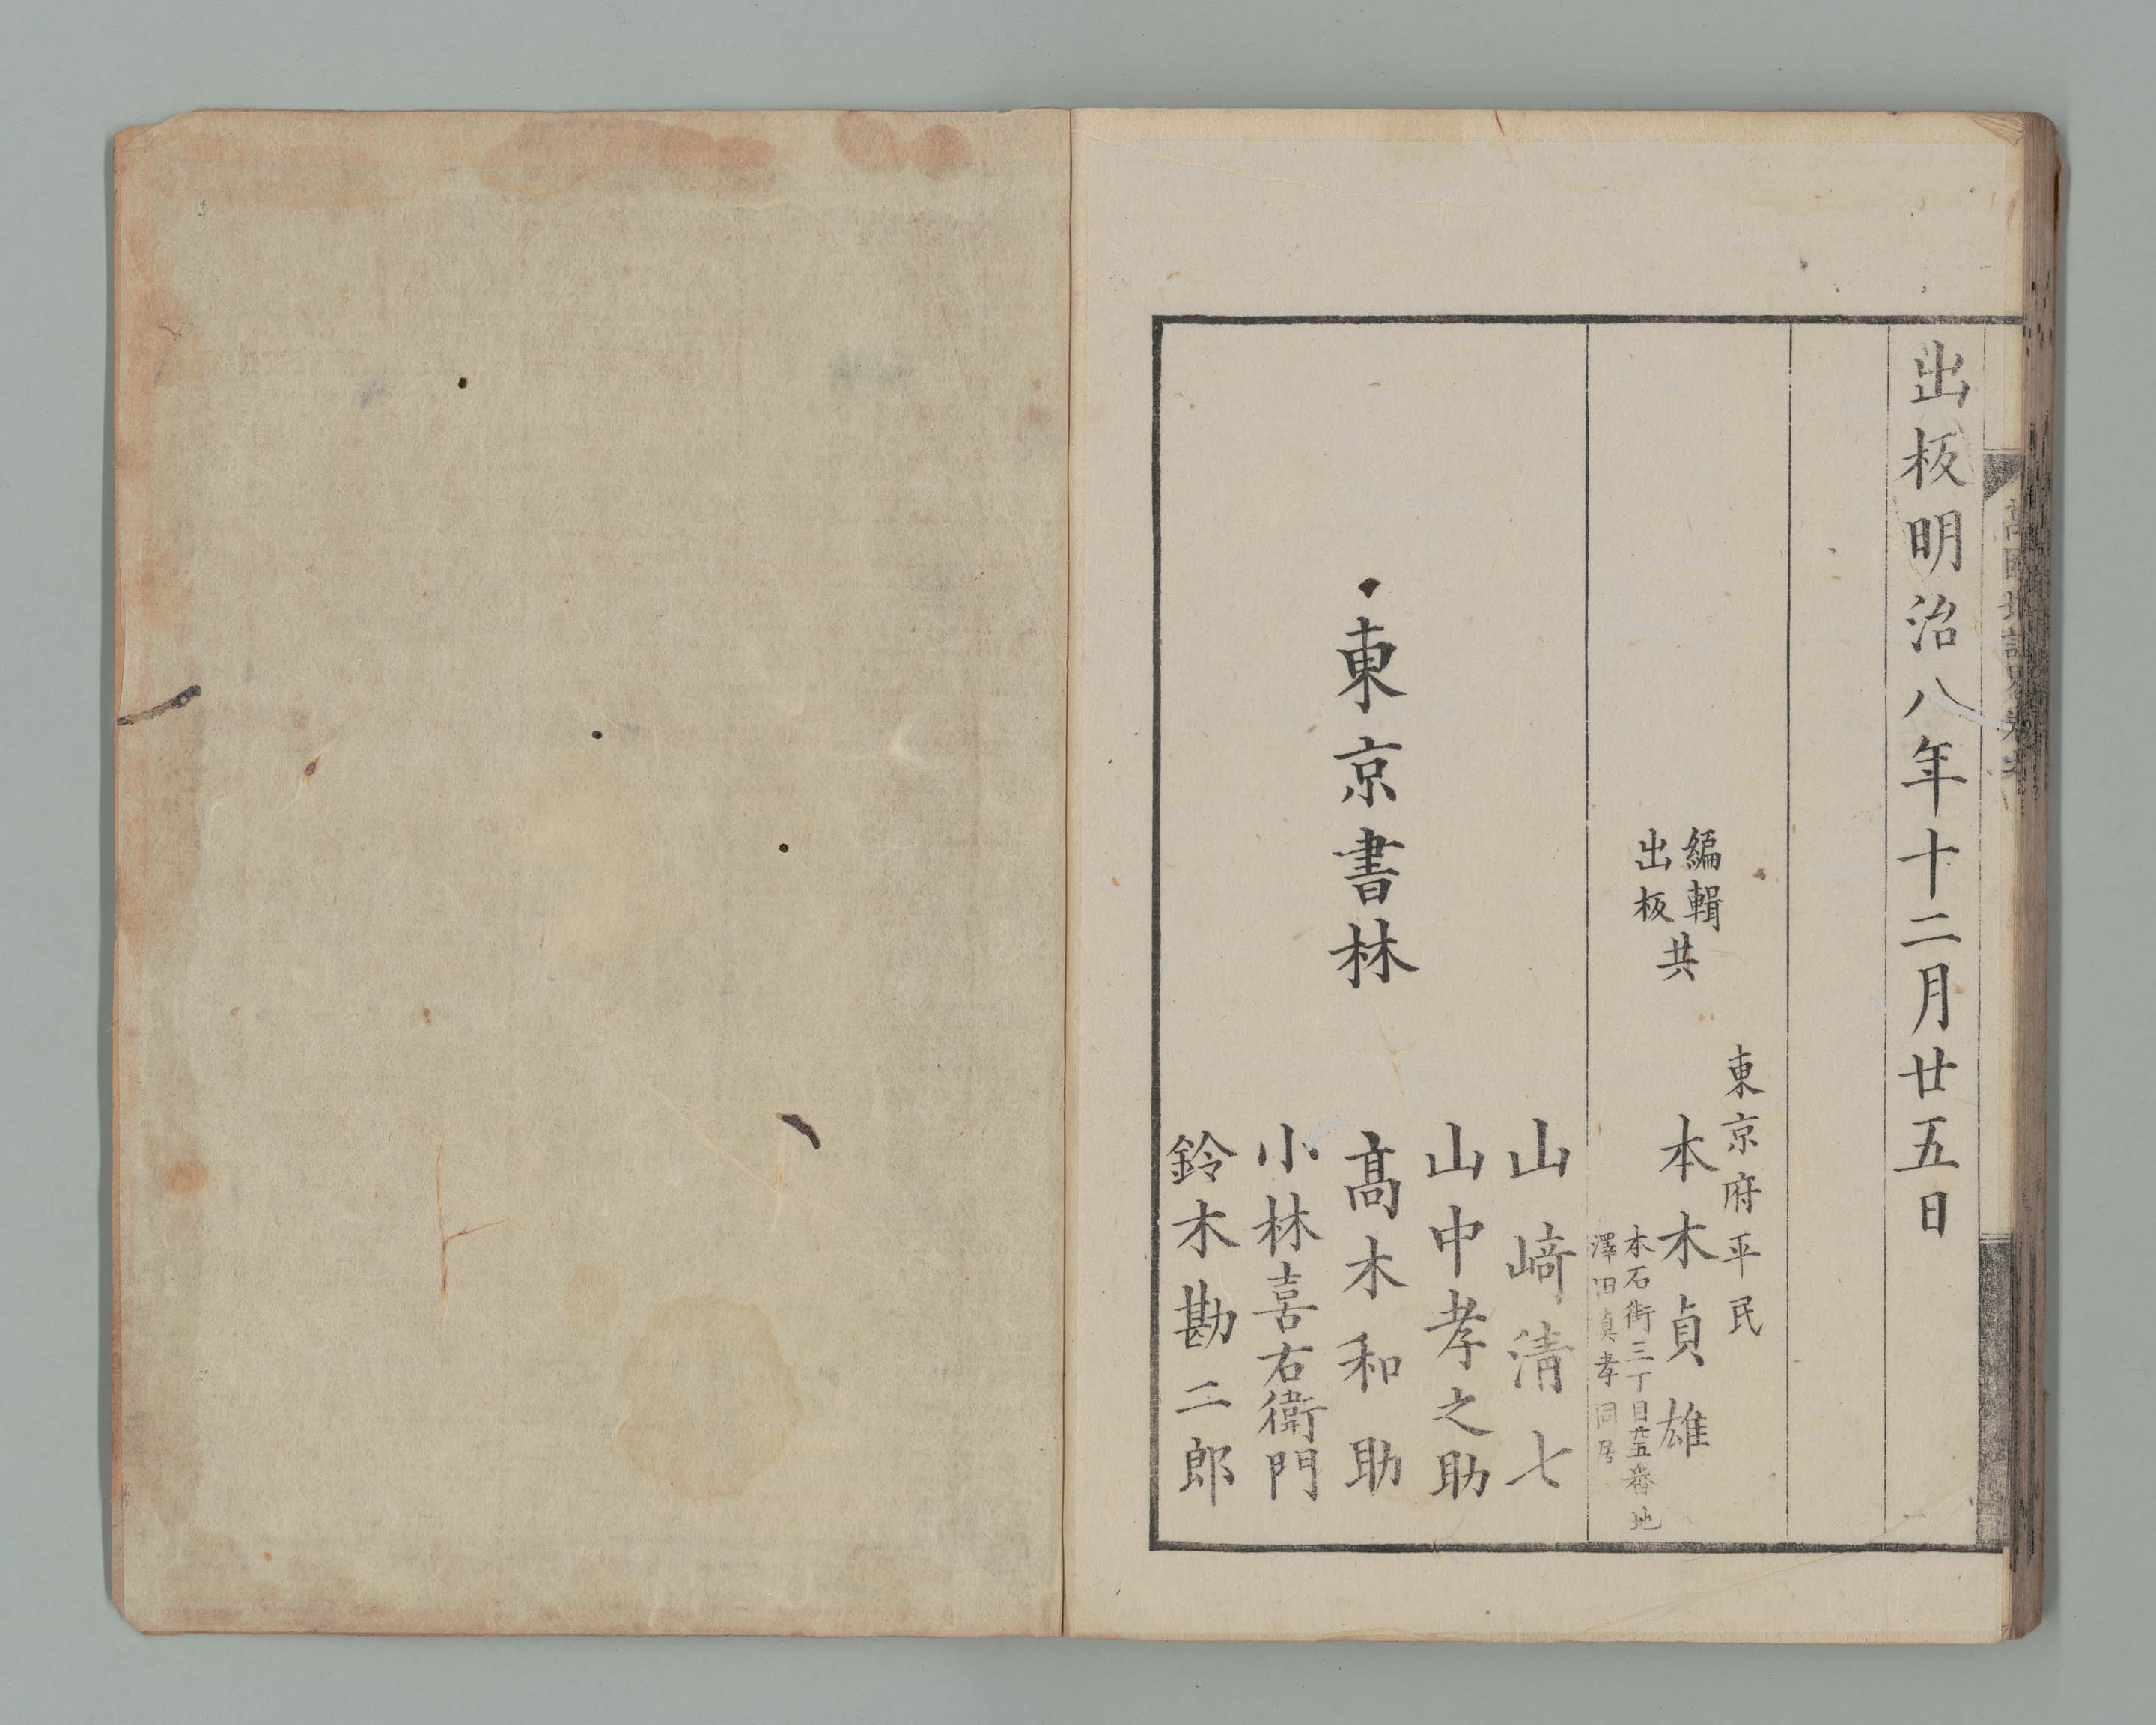 出板明治八年十二月廿五日
編輯
出板
共
東京府平民
本木貞雄
本石街三丁目廿五番地
澤田真孝同居
東京書林
山﨑清七
山中孝之助
髙木和助
小林喜右衛門
鈴木勘二郎